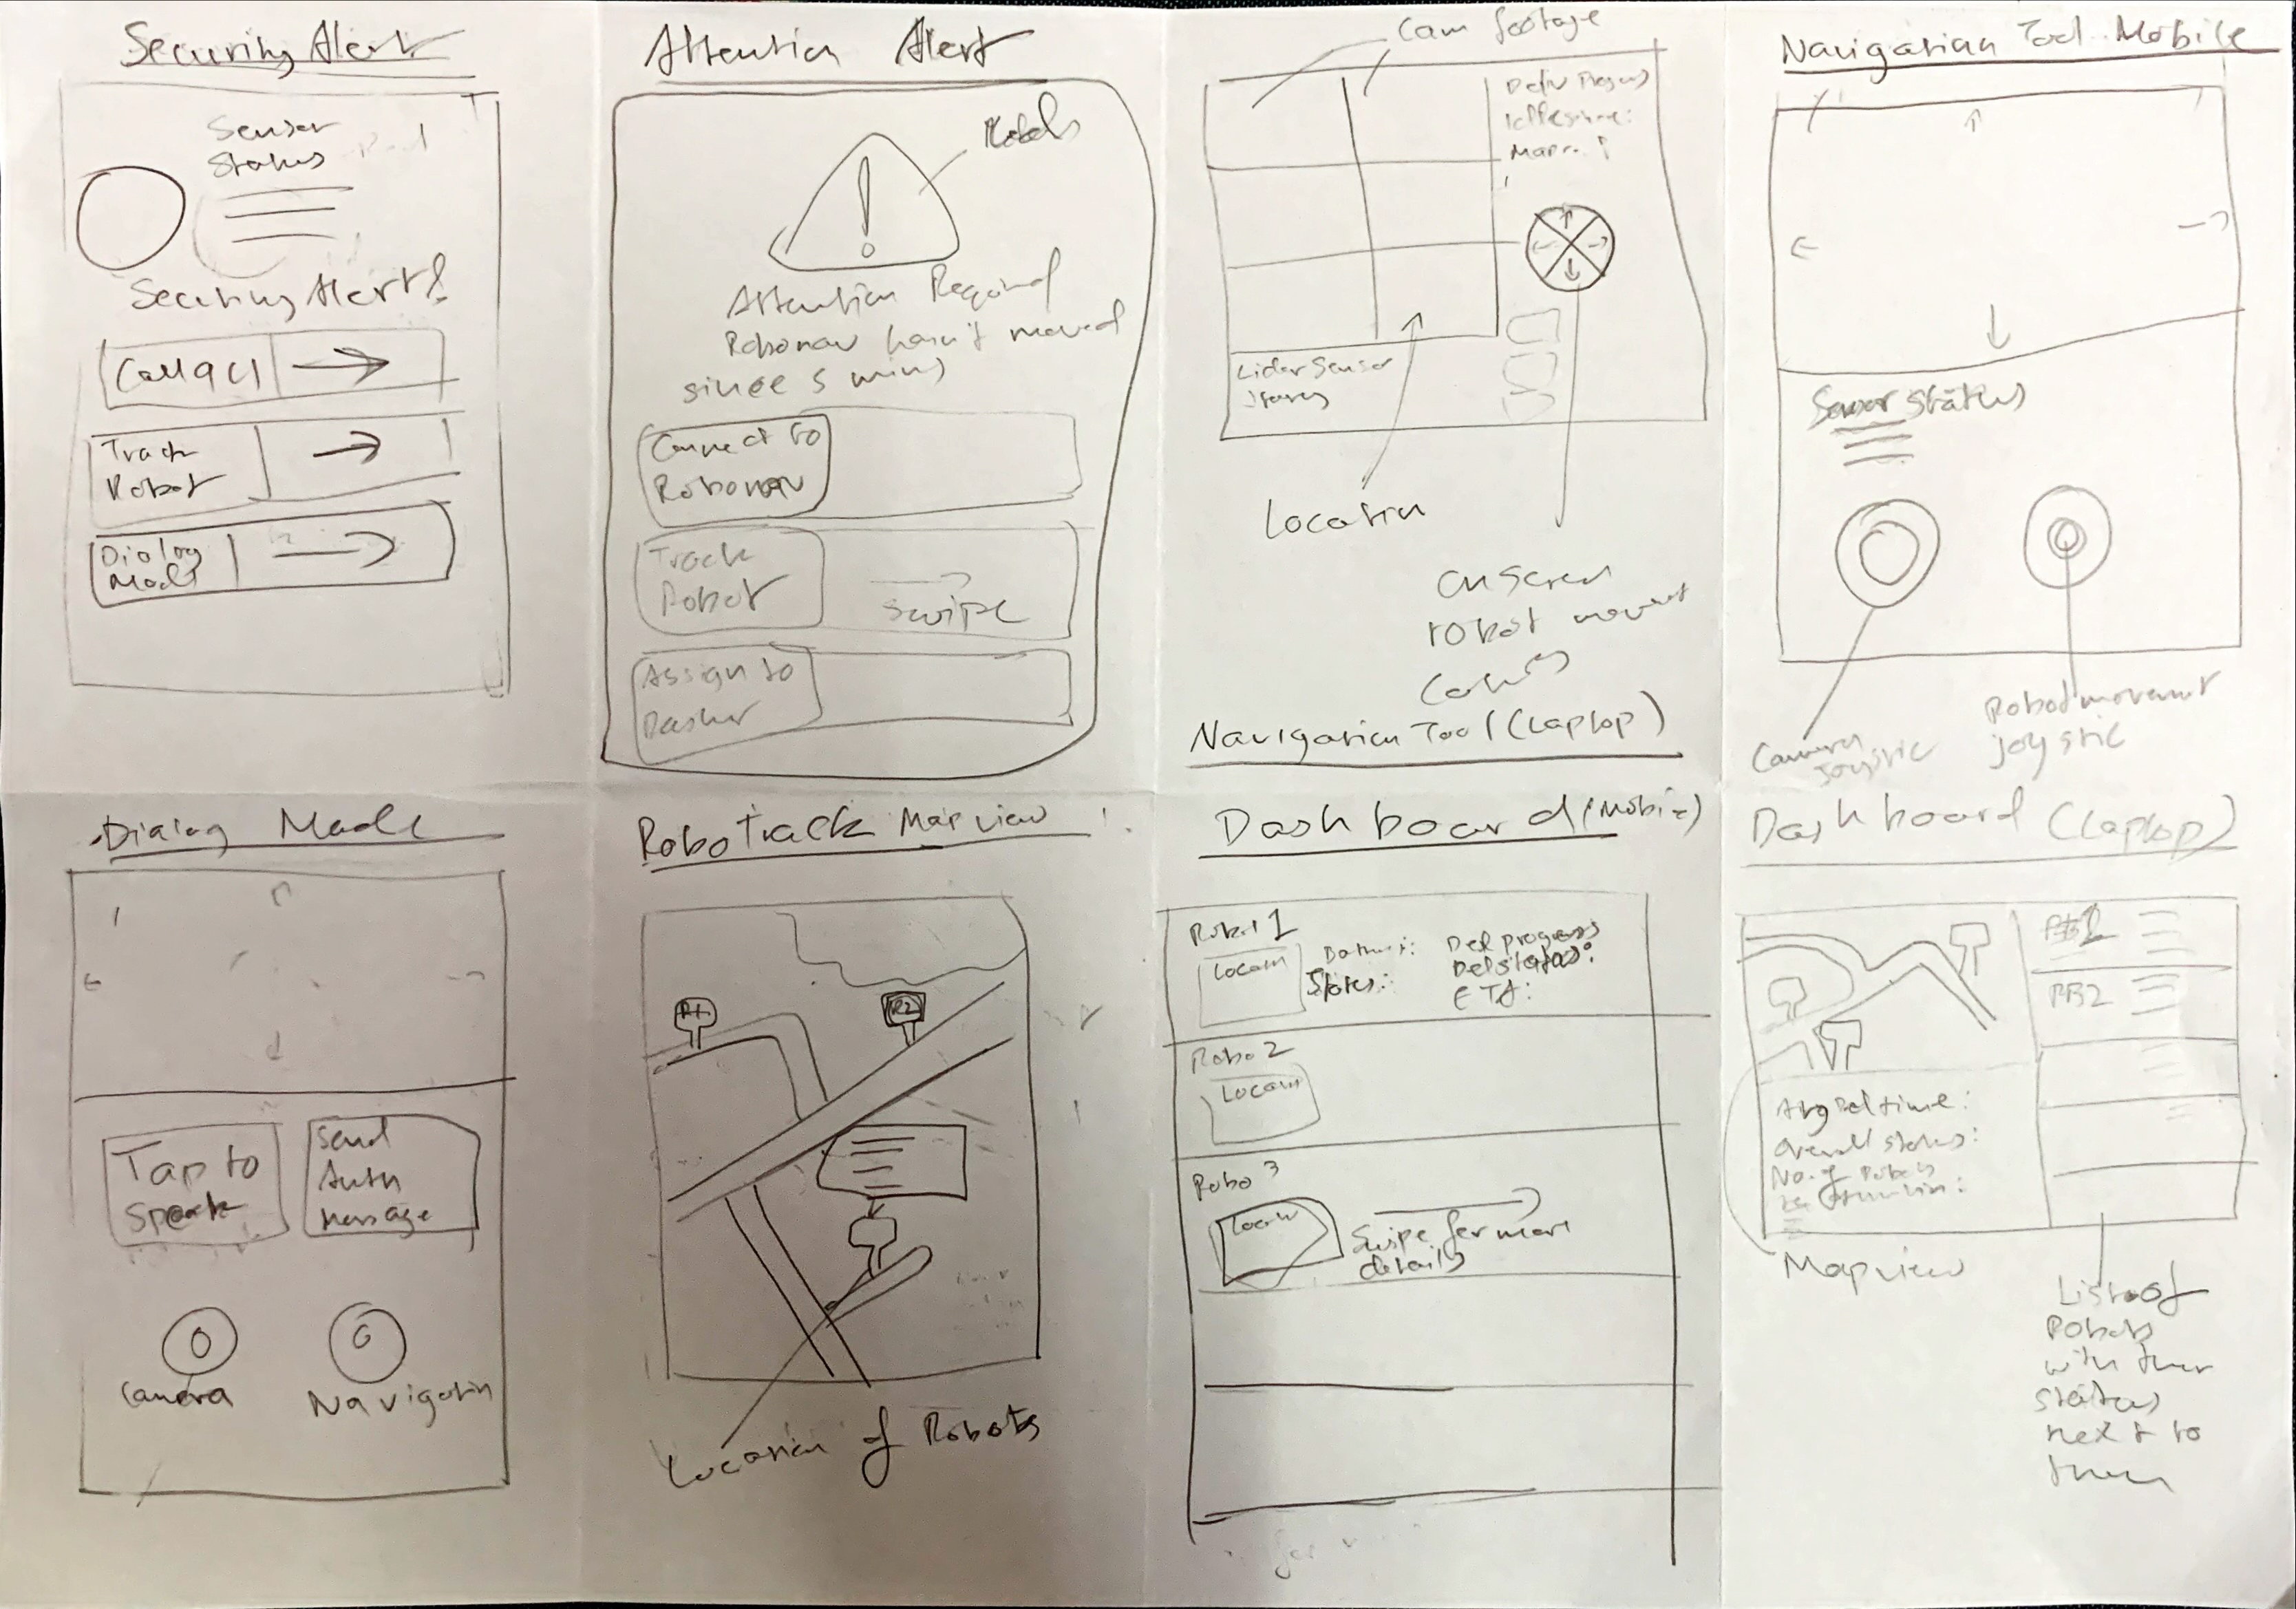 Security Alert
Sensor
Status
Security Alert!
Call 911
Track
Robot
Dialog
Mode
Attention Alert
Attention Required
Robonav hasn't moved
since 5 mins
Connect to
Robonav
Track
Robot
swipe
Assign to
Dasher
Cam footage
Lidar Sensor
Location
on screen
robot movement
Navigation Tool (Laptop)
Navigation Tool Mobile
Sensor Status
Camera
Joystic
Robot movement
joystic
Dialog Mode
Tap to
Speak
Send
Auth
Message
Camera
Navigation
Robo Track Map view
R1
R2
Location of Robots
Dashboard (Mobile)
Robot 1
Locam
Status:
Del progress
Del status:
ETA:
Robo 2
Locam
Robo 3
Locam
Swipe for more
details
Dashboard (Laptop)
RB1
RB2
Avg Del time:
Overall status:
No. of Robots
Mapview
List of
Robots
with their
status
next to
them